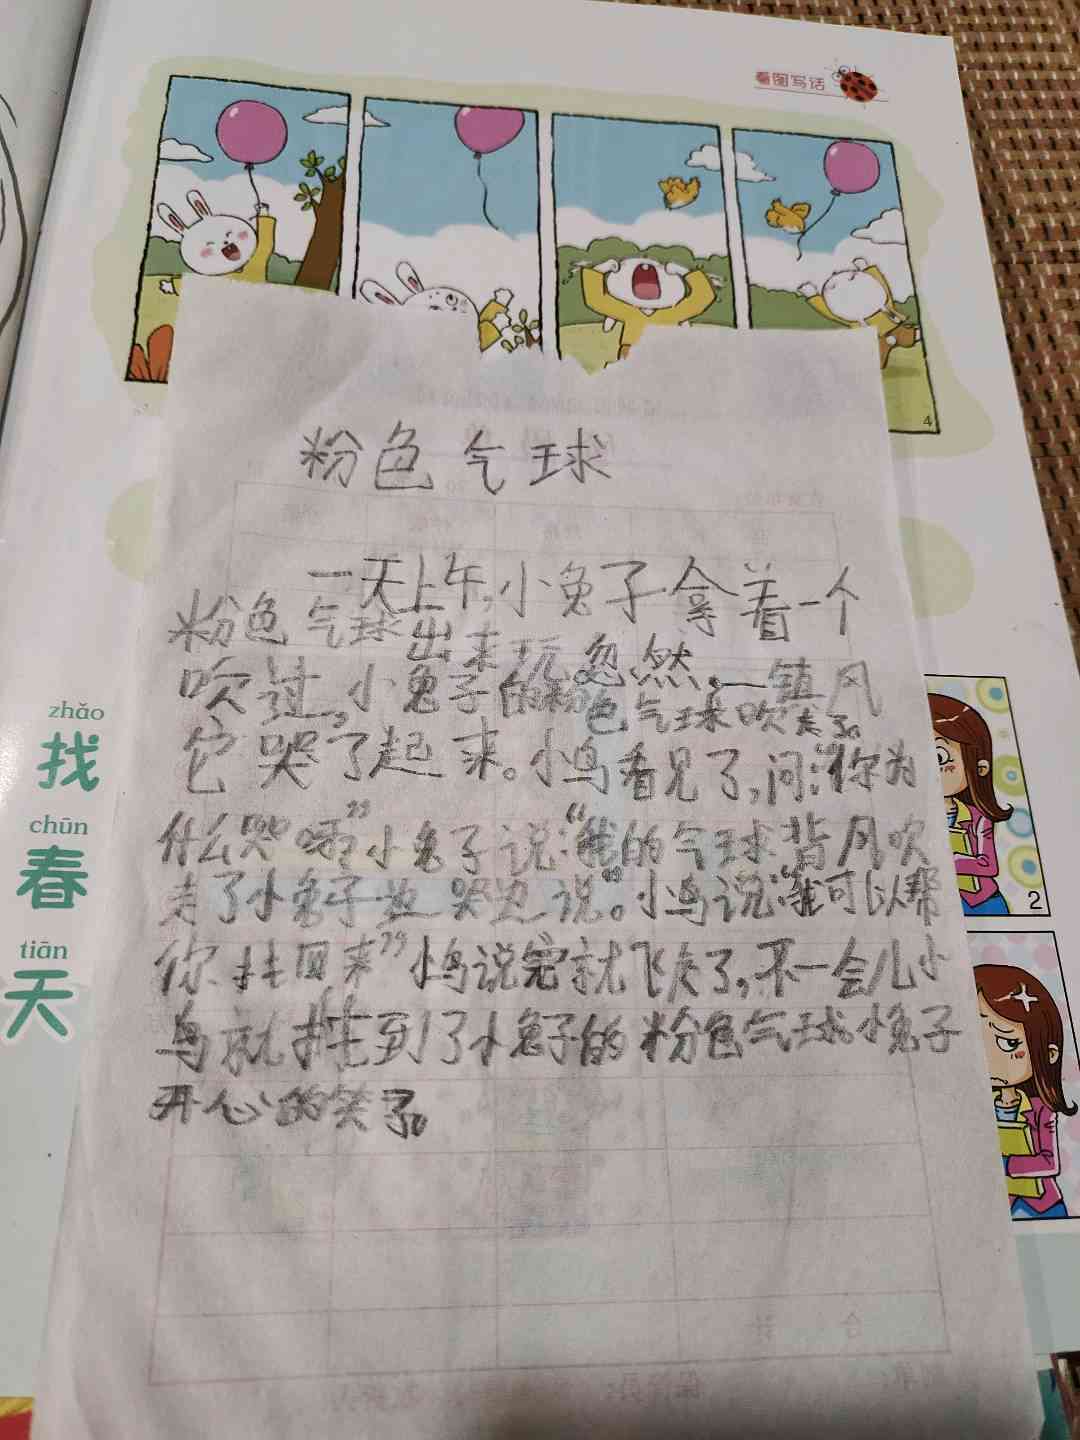 看图写话
4
粉色气球
一天上午,小兔子拿着一个
粉色气球出来玩。忽然,一镇风
吹过,小兔子的粉色气球吹走了。
它哭了起来。小鸟看见了,问:“你为
什么哭呀”小兔子说:“我的气球背风吹
走了小兔子边哭边说”。小鸟说:“我可以帮
你找回来”小鸟说完就飞走了,不一会儿小
鸟就找到了小兔子的粉色气球。小兔子
开心的笑了。
zhǎo
找
chūn
春
tiān
天
2